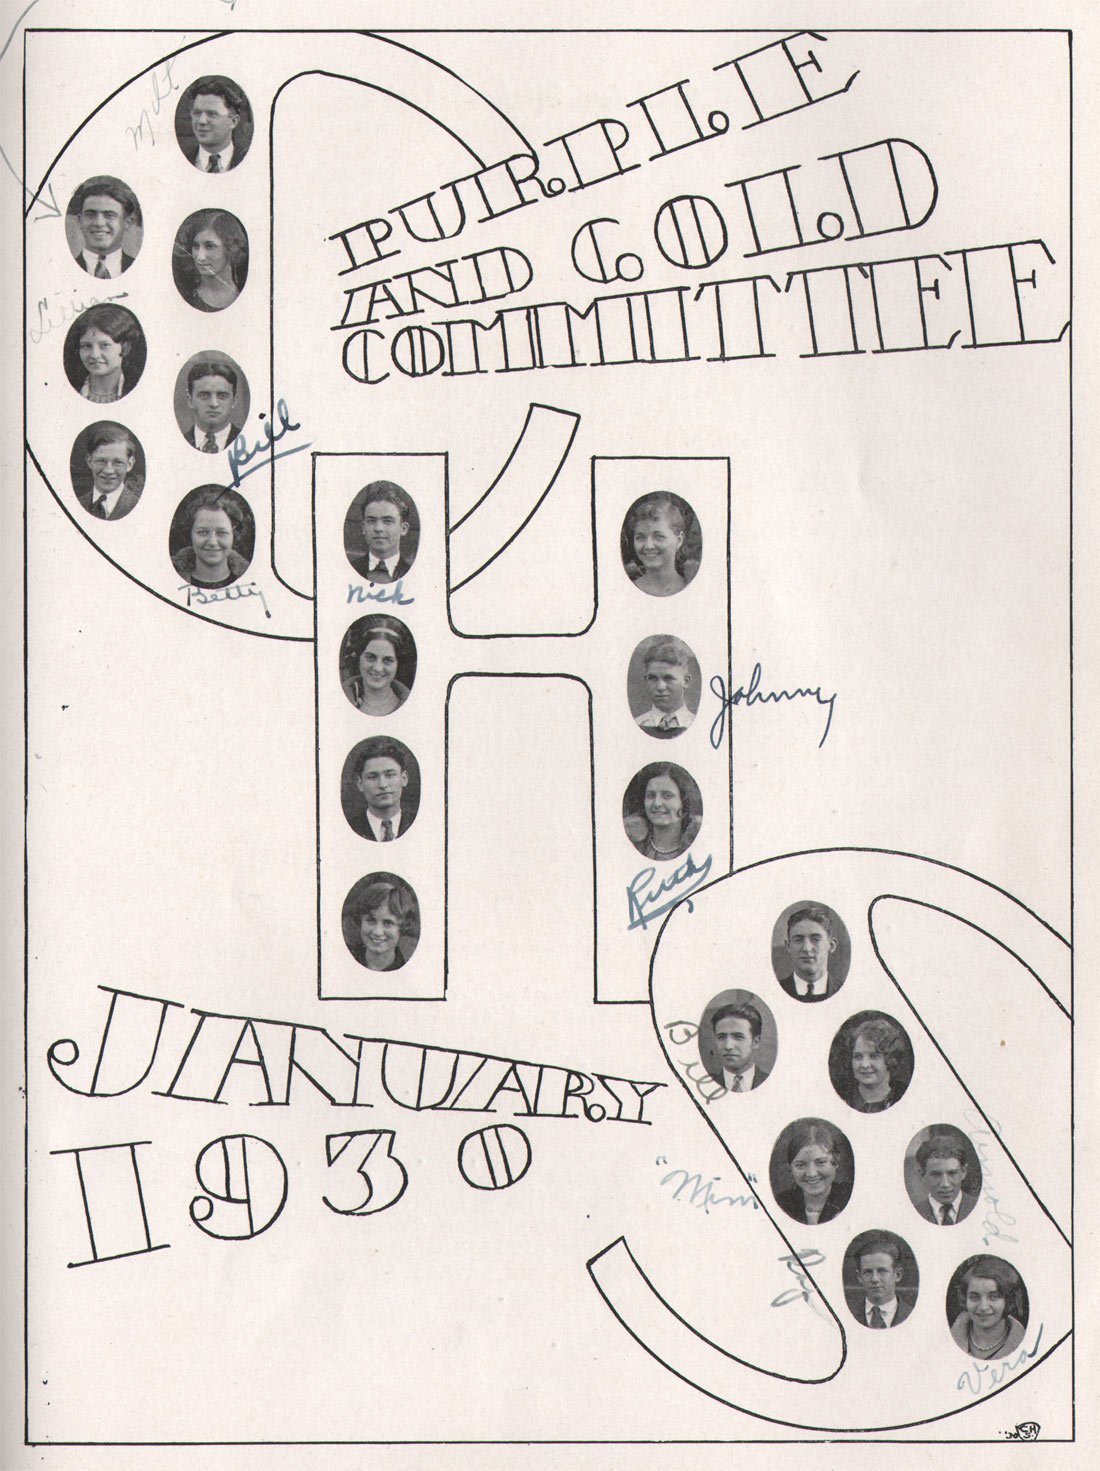 PURPLE
AND GOLD
COMMITTEE
CHS
Milt
Lillian
Bill
Betty
Nick
Johnny
Ruth
JANUARY
1930
Bill
"Mim"
Arnold.
Ray
Vera